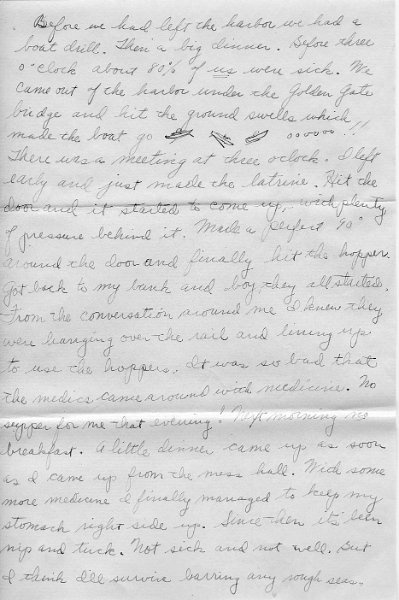 Before we had left the harbor we had a
boat drill. Then a big dinner. Before three
o'clock about 80% of us were sick. We
came out of the harbor under the Golden Gate
bridge and hit the ground swells which
made the boat go oooooo!!
There was a meeting at three o'clock. I left
early and just made the latrine. Hit the
door and it started to come up, with plenty
of pressure behind it. Made a perfect 90°
around the door and finally hit the hopper.
Got back to my bunk and boy they all started.
From the conversation around me I knew they
were hanging over the rail and lining up
to use the hoppers. It was so bad that
the medics came around with medicine. No
supper for me that evening! Next morning no
breakfast. A little dinner came up as soon
as I came up from the mess hall. With some
more medicine I finally managed to keep my
stomach right side up. Since then it's been
nip and tuck. Not sick and not well. But
I think I'll survive barring any rough seas.